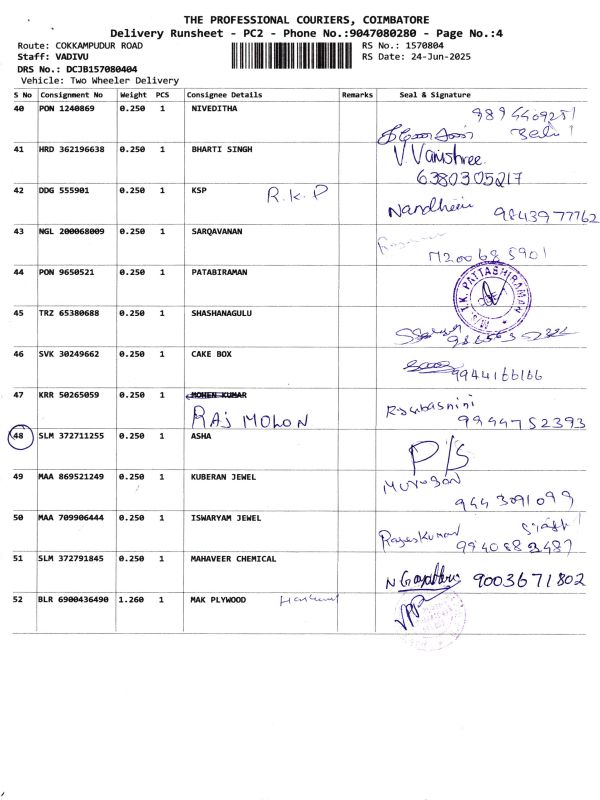 THE PROFESSIONAL COURIERS, COIMBATORE
Delivery Runsheet - PC2 - Phone No.:9047080280 - Page No.:4
Route: COKKAMPUDUR ROAD
RS No.: 1570804
Staff: VADIVU
RS Date: 24-Jun-2025
DRS No.: DCJB157080404
Vehicle: Two Wheeler Delivery
S No Consignment No Weight PCS Consignee Details Remarks Seal & Signature
40 PON 1240869 0.250 1 NIVEDITHA
41 HRD 362196638 0.250 1 BHARTI SINGH V Vanishree
6380305217
42 DDG 555901 0.250 1 KSP R.K.P
9843977762
43 NGL 200068009 0.250 1 SARQAVANAN
44 PON 9650521 0.250 1 PATABIRAMAN M/s. T.K. PATTABHIRAMAN
45 TRZ 65380688 0.250 1 SHASHANAGULU
46 SVK 30249662 0.250 1 CAKE BOX
9944166166
47 KRR 50265059 0.250 1 MOHEN KUMAR
RAJ MOHON 9944752393
48 SLM 372711255 0.250 1 ASHA P/S
49 MAA 869521249 0.250 1 KUBERAN JEWEL Murugan
9443091099
50 MAA 709906444 0.250 1 ISWARYAM JEWEL
51 SLM 372791845 0.250 1 MAHAVEER CHEMICAL 9003671802
52 BLR 6900436490 1.260 1 MAK PLYWOOD